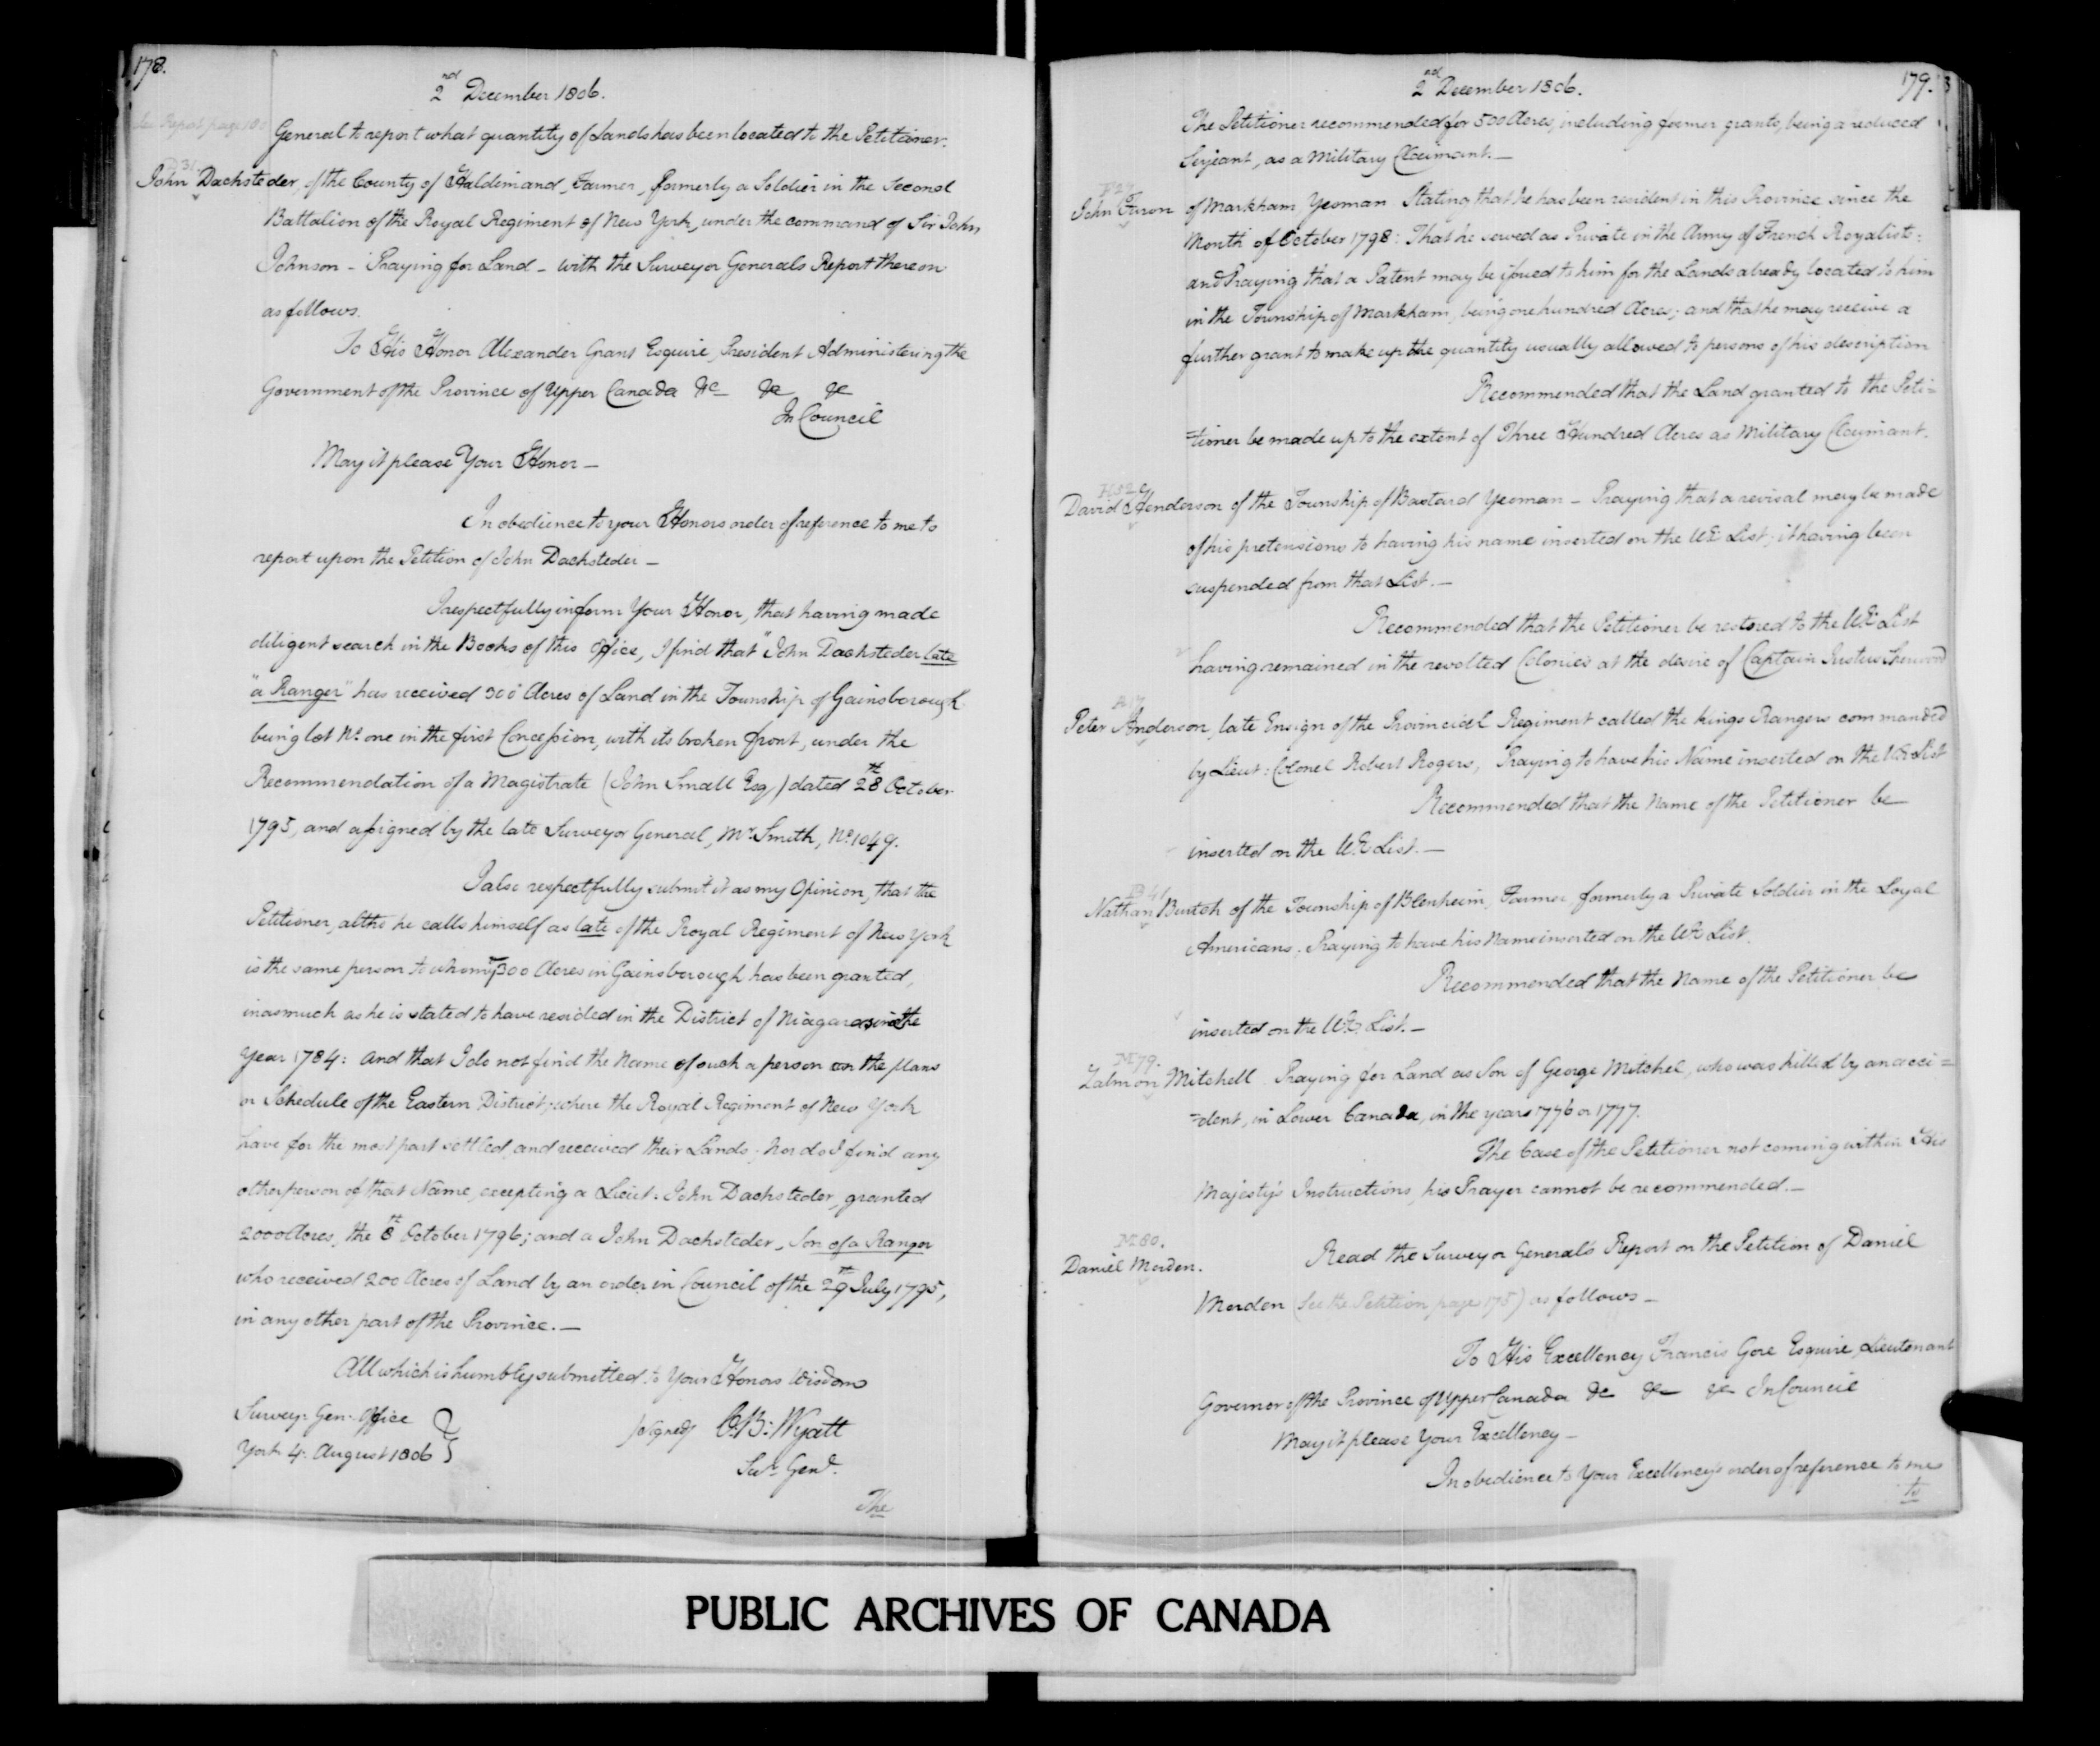 178.
2nd December 1806.
See Report page 180
General to report what quantity of Lands has been located to the Petitioner.
D 31.
John Dachsteder, of the County of Haldimand, Farmer, formerly a Soldier in the Second
Battalion of the Royal Regiment of New York, under the command of Sir John
Johnson - Praying for Land - with the Surveyor Generals Report thereon
as follows.
To His Honor Alexander Grant Esquire, President Administering the
Government of the Province of Upper Canada &c &c &c
In Council
May it please Your Honor -
In obedience to your Honors order of reference to me to
report upon the Petition of John Dachsteder -
I respectfully inform Your Honor, that having made
diligent search in the Books of this Office, I find that "John Dachsteder late
"a Ranger" has received 300 Acres of Land in the Township of Gainsborough
being lot No. one in the first Concession, with its broken front, under the
Recommendation of a Magistrate (John Small Esq) dated 28th October
1795, and assigned by the late Surveyor General, Mr. Smith, No. 1049.
I also respectfully submit it as my Opinion, that the
Petitioner, altho he calls himself as late of the Royal Regiment of New York
is the same person to whom ye 300 Acres in Gainsborough has been granted,
inasmuch as he is stated to have resided in the District of Niagara since the
Year 1784: and that I do not find the Name of such a person on the plans
or Schedule of the Eastern District, where the Royal Regiment of New York
have for the most part settled, and received their Lands; Nor do I find any
other person of that Name, excepting a Lieut: John Dachsteder, granted
2000 Acres, the 8th October 1796; and a John Dachsteder, Son of a Ranger
who received 200 Acres of Land by an order in Council of the 29th July 1795,
in any other part of the Province. -
All which is humbly submitted to Your Honors Wisdom
Survey: Gen: Office
York 4: August 1806
(signed) C.B: Wyatt
Sur. Genl.
The
2nd December 1806.
179.
The Petitioner recommended for 500 Acres, including former grants, being a reduced
Serjeant, as a Military Claimant. -
John Furon of Markham Yeoman Stating that he has been resident in this Province since the
Month of October 1798: That he served as Private in the Army of French Royalists:
and Praying that a Patent may be issued to him for the Lands already located to him
in the Township of Markham, being one hundred Acres; and that he may receive a
further grant to make up the quantity usually allowed to persons of his description
Recommended that the Land granted to the Peti=
=tioner be made up to the extent of Three Hundred Acres as Military Claimant.
David Henderson of the Township of Bastard Yeoman - Praying that a revisal may be made
of his pretensions to having his name inserted on the UE List; it having been
suspended from that List. -
Recommended that the Petitioner be restored to the U.E List
having remained in the revolted Colonies at the desire of Captain Justus Sherwood
Peter Anderson, late Ensign of the Provincial Regiment called the Kings Rangers commanded
by Lieut: Colonel Robert Rogers, Praying to have his Name inserted on the UE List
Recommended that the Name of the Petitioner be
inserted on the U.E List. -
Nathan Burtch of the Township of Blenheim, Farmer, formerly a Private Soldier in the Loyal
Americans; Praying to have his Name inserted on the UE List.
Recommended that the Name of the Petitioner be
inserted on the UE List. -
M 79.
Zalmon Mitchell Praying for Land as Son of George Mitchel, who was killed by an acci=
=dent, in Lower Canada, in the years 1776 or 1777.
The Case of the Petitioner not coming within His
Majesty's Instructions, his Prayer cannot be recommended. -
M 80.
Daniel Morden.
Read the Surveyor General's Report on the Petition of Daniel
Morden (See the Petition page 175) as follows -
To His Excellency Francis Gore Esquire, Lieutenant
Governor of the Province of Upper Canada &c &c &c In Council
May it please Your Excellency -
In obedience to Your Excellency's order of reference to me
to
PUBLIC ARCHIVES OF CANADA